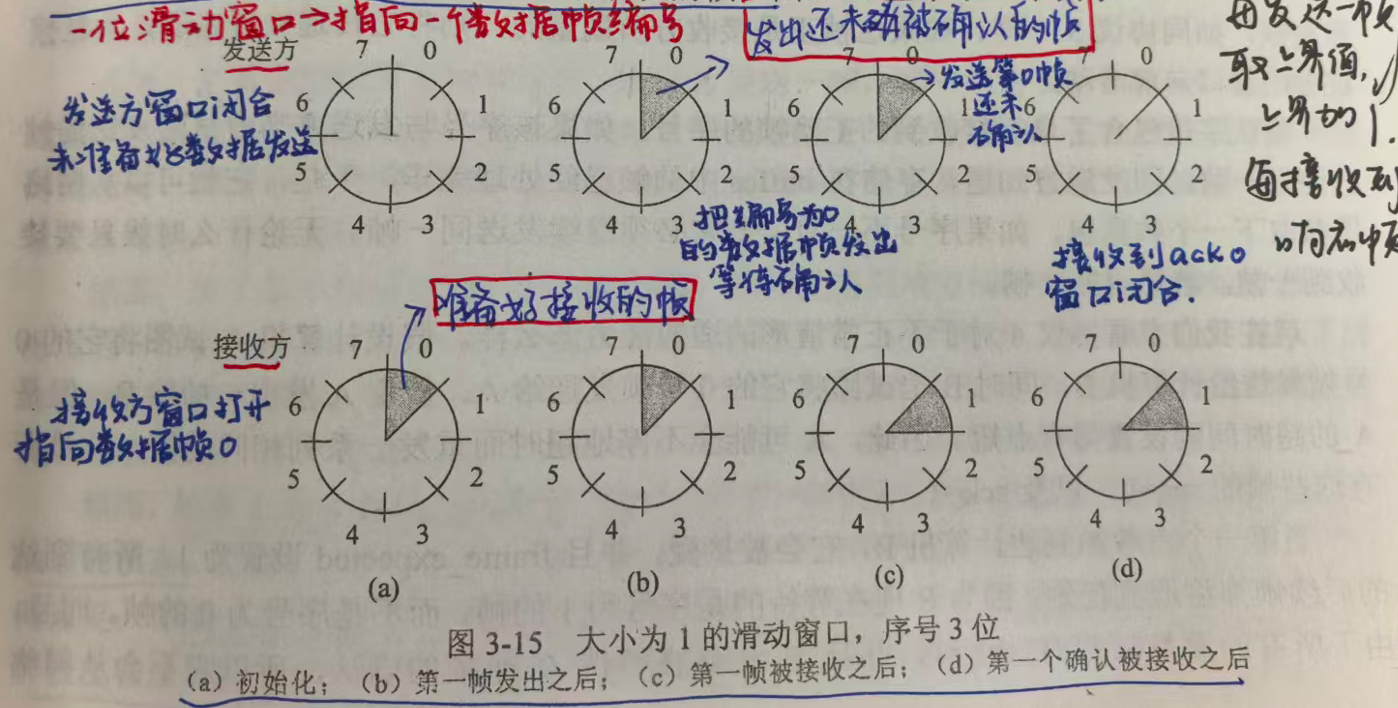 一位滑动窗口→指向一个数据帧编号
发出还未被确认的帧
每发送一帧
取上界值，
上界加1.
每接收到
发送方
发送方窗口闭合
未准备好数据发送
7 0 6 1 5 2 4 3
7 0 1 5 2 4 3
7 0 6 1 5 2 4 3
7 0 6 1 5 2 4 3
→发送第0帧
还未
确认
把编号为0
的数据帧发出
等待确认
接收到ack0
窗口闭合.
准备好接收的帧
接收方
接收方窗口打开
指向数据帧0
7 0 6 1 5 2 4 3
7 0 6 1 5 2 4 3
7 0 6 1 5 2 4 3
7 0 6 1 5 2 4 3
(a) (b) (c) (d)
图 3-15 大小为 1 的滑动窗口，序号 3 位
（a）初始化；（b）第一帧发出之后；（c）第一帧被接收之后；（d）第一个确认被接收之后